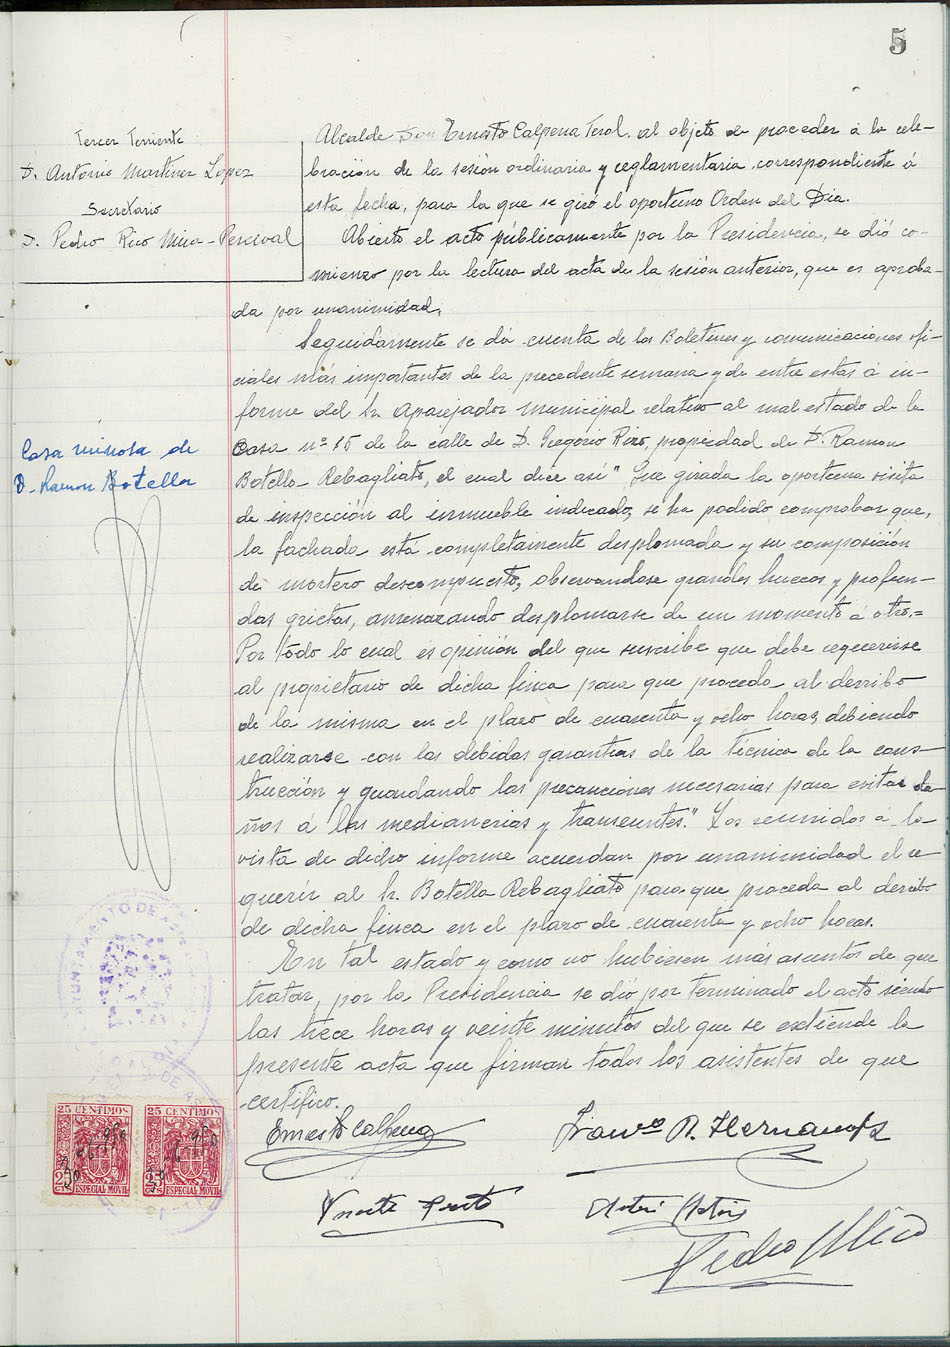 5
Tercer Teniente
D. Antonio Martinez Lopez
Secretario
D. Pedro Rico Mira-Perceval
Alcalde Don Ernesto Calpena Terol, al objeto de proceder á la cele-
bración de la sesión ordinaria y reglamentaria correspondiente á
esta fecha, para la que se giró el oportuno Orden del Dia.
Abierto el acto públicamente por la Presidencia, se dió co-
mienzo por la lectura del acta de la sesión anterior, que es aproba-
da por unanimidad.
Seguidamente se dá cuenta de los Boletines y comunicaciones ofi-
ciales más importantes de la precedente semana y de entre estas á in-
forme del Sr. Aparejador Municipal relativo al mal estado de la
Casa nº 15 de la calle de D. Gregorio Rizo, propiedad de D. Ramon
Botella Rebagliato, el cual dice asi "Que girada la oportuna visita
de inspección al inmueble indicado, se ha podido comprobar que,
la fachada está completamente desplomada y su composición
de mortero descompuesto, observandose grandes huecos y profun-
das grietas, amenazando desplomarse de un momento á otro.=
Por todo lo cual es opinión del que suscribe que debe requerirse
al propietario de dicha finca para que proceda al derribo
de la misma en el plazo de cuarenta y ocho horas, debiendo
realizarse con las debidas garantias de la técnica de la cons-
trucción y guardando las precauciones necesarias para evitar da-
ños á las medianerias y transeuntes." Los reunidos á la
vista de dicho informe acuerdan por unanimidad el re-
querir al Sr. Botella Rebagliato para que proceda al derribo
de dicha finca en el plazo de cuarenta y ocho horas.
En tal estado y como no hubiesen más asuntos de que
tratar, por la Presidencia se dió por terminado el acto siendo
las trece horas y veinte minutos del que se extiende la
presente acta que firman todos los asistentes de que
certifico.
Casa ruinosa de
D. Ramon Botella
AYUNTAMIENTO DE
25 CENTIMOS
25 CENTIMOS
ESPECIAL MOVIL
ESPECIAL MOVIL
Ernesto Calpena
Franco R. Hernandez
Pedro Rico